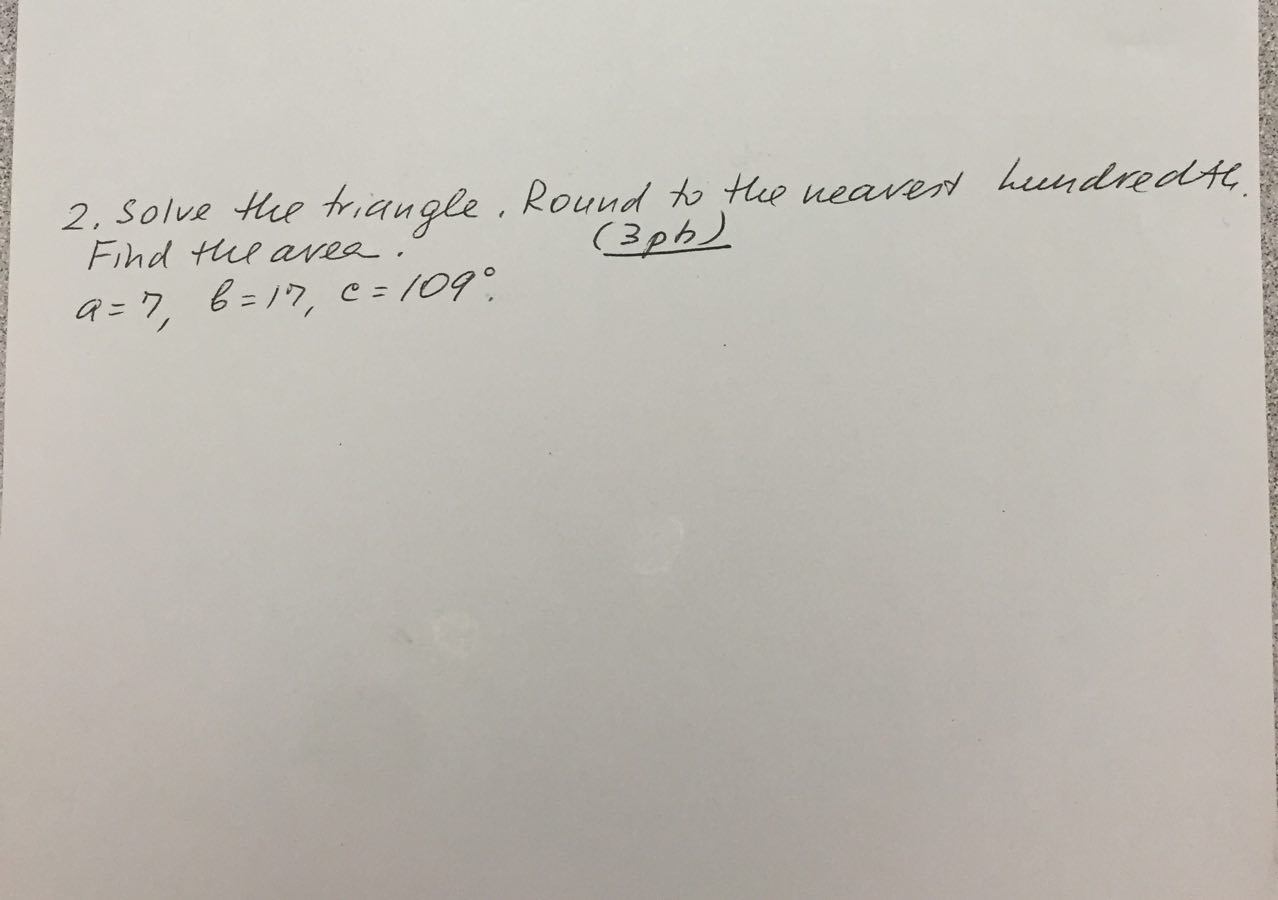 2. Solve the triangle. Round to the nearest hundredth.
Find the area. (3pts)
a=7, b=17, c=109°.